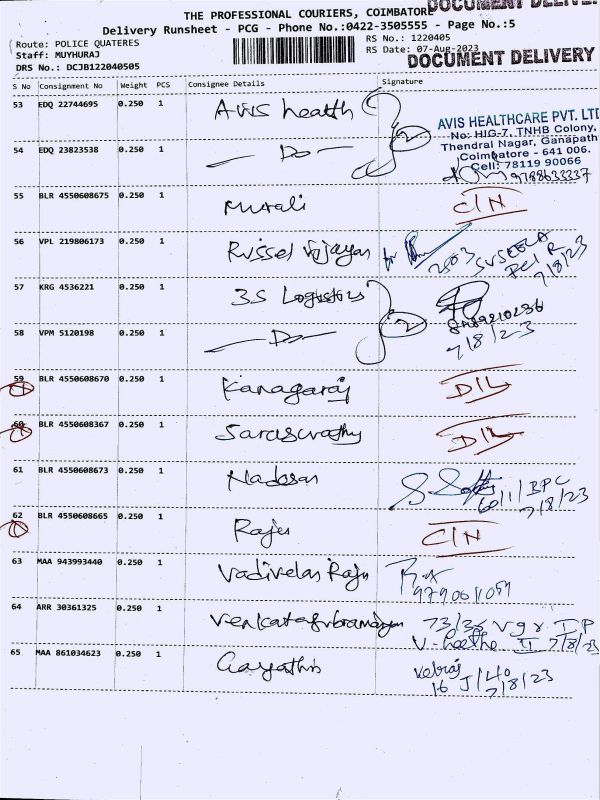 DOCUMENT DELIVERY
THE PROFESSIONAL COURIERS, COIMBATORE
Delivery Runsheet - PCG - Phone No.:0422-3505555 - Page No.:5
Route: POLICE QUATERES
RS No.: 1220405
Staff: MUYHURAJ
RS Date: 07-Aug-2023
DRS No.: DCJB122040505
DOCUMENT DELIVERY
S No Consignment No Weight PCS Consignee Details Signature
53 EDQ 22744695 0.250 1 Avis health
AVIS HEALTHCARE PVT. LTD
No: HIG-7, TNHB Colony,
Thendral Nagar, Ganapath
Coimbatore - 641 006.
Cell: 78119 90066
54 EDQ 23823538 0.250 1 — Do — 2
9788633337
55 BLR 4550608675 0.250 1 Murali C/N
56 VPL 219806173 0.250 1 Russel Vijayan for 2503 SUSEELA
7/8/23
57 KRG 4536221 0.250 1 3S Logistics
58 VPM 5120198 0.250 1 — Do — 2
7/8/23
59 BLR 4550608670 0.250 1 Kanagaraj D/L
60 BLR 4550608367 0.250 1 Saraswathy D/L
61 BLR 4550608673 0.250 1 Nadesan 60/1 BPC
7/8/23
62 BLR 4550608665 0.250 1 Raju C/N
63 MAA 943993440 0.250 1 Vadivelan Raju
64 ARR 30361325 0.250 1 Venkatasubramaniyan 73/35
7/8/23
65 MAA 861034623 0.250 1 Gayathri
16 J/40
7/8/23